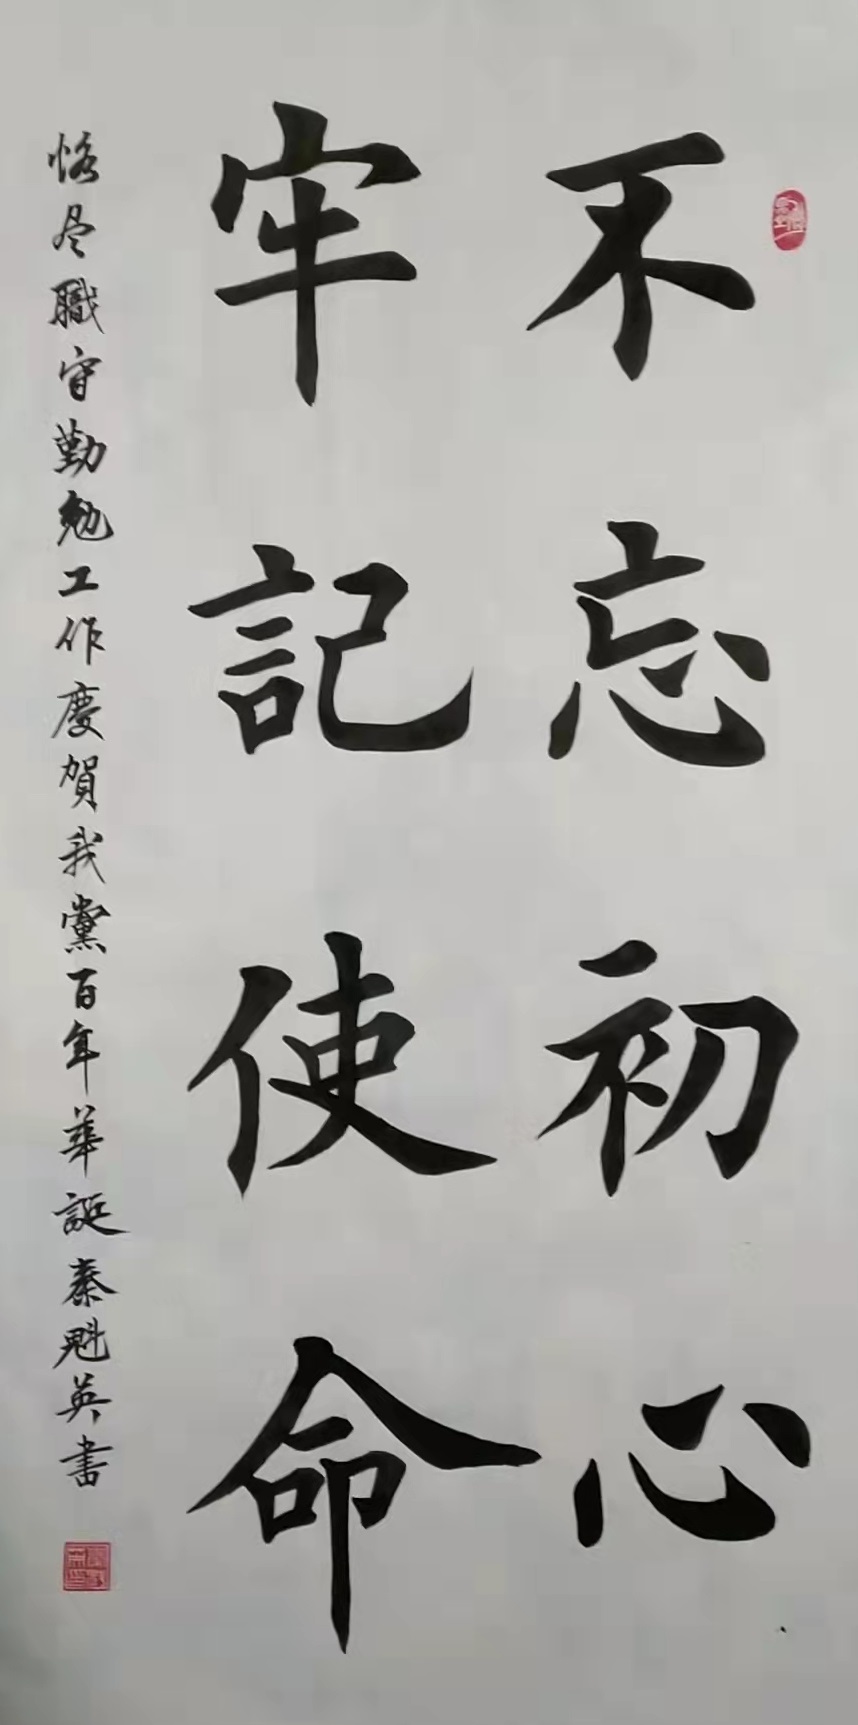 不忘初心
牢記使命
恪尽職守勤勉工作慶賀我黨百年華誕秦魁英書